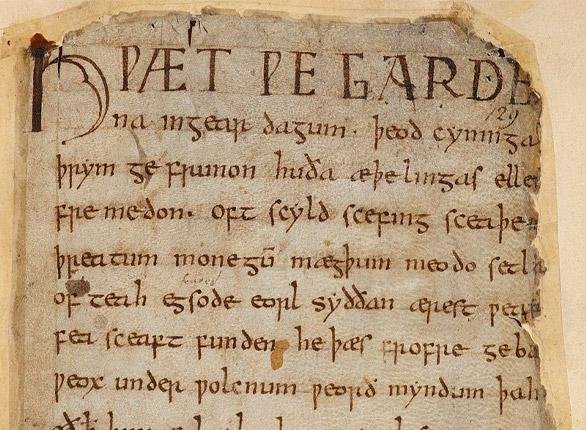 HǷÆT ǷE GARDE
129
na in gear dagum · þeod cyninga
þrym ge frunon huða æþelingas elle
fremedon · oft scyld scefing sceaþe
þreatum monegū mægþum meodo setla
of teah egsode eorl syððan ærest
fea sceaft funden he þæs frofre geba
ƿeox under ƿolcnum ƿeorð myndum þah